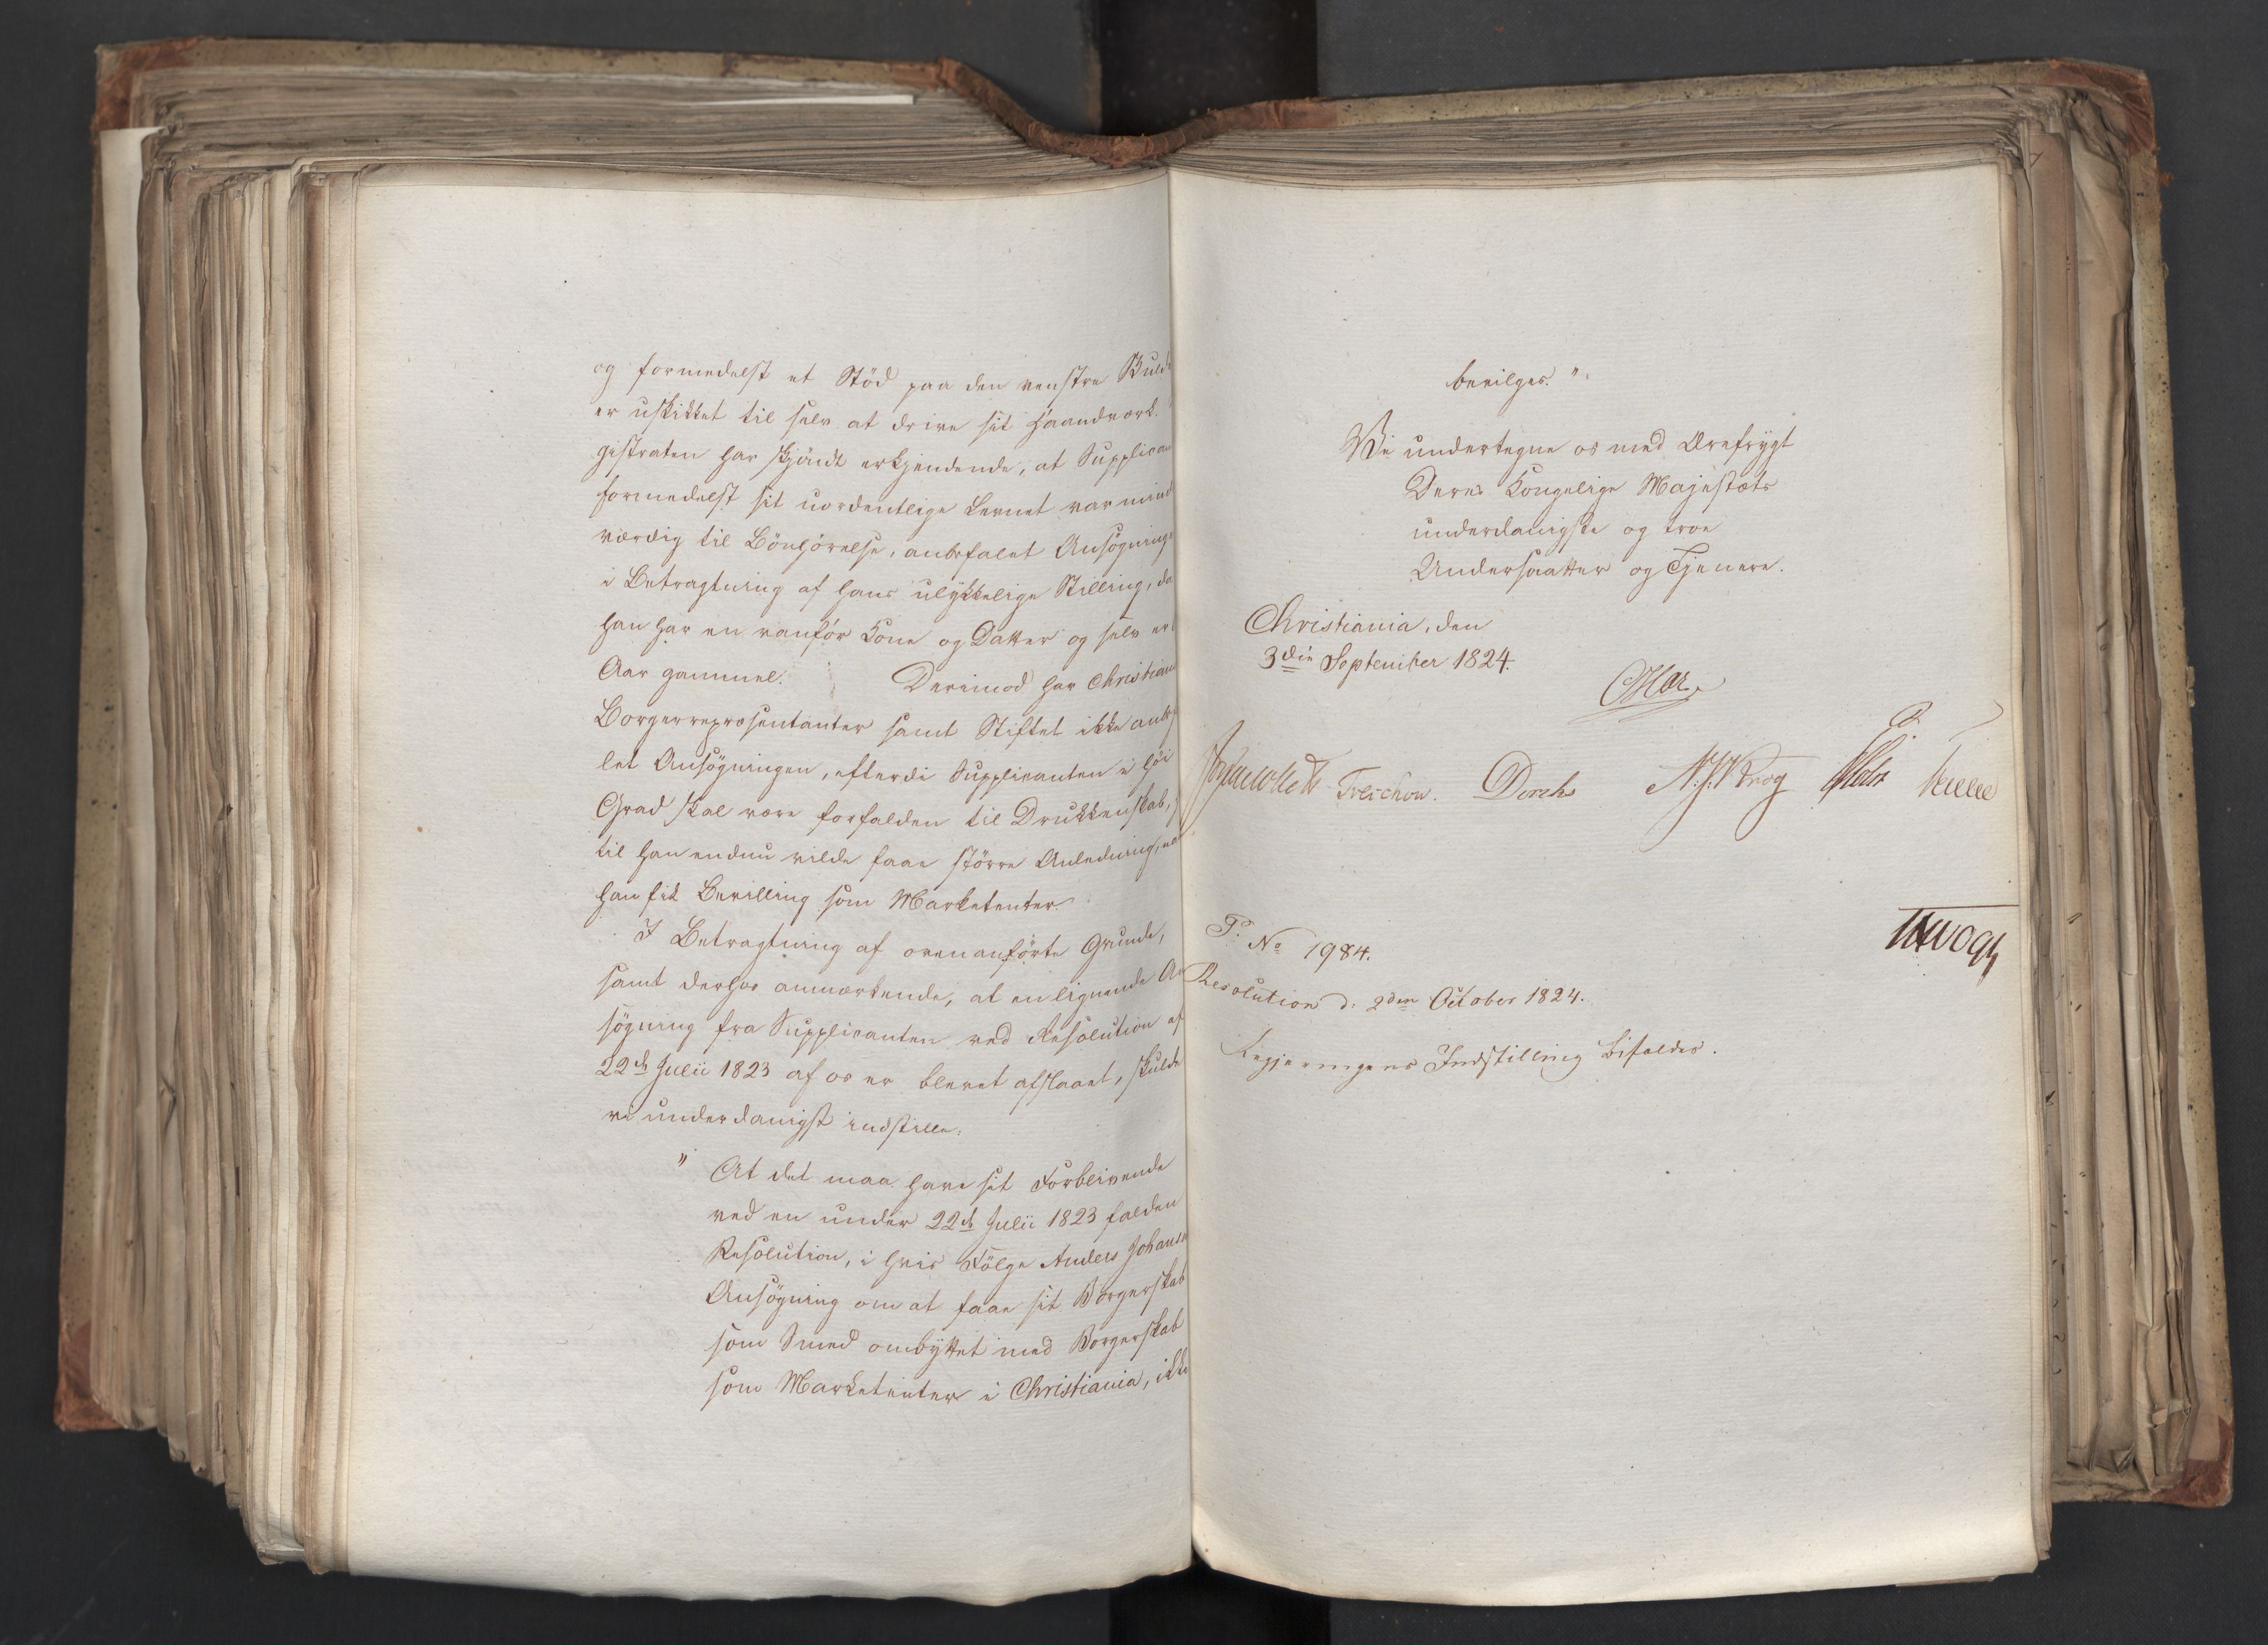 og formedelst et Stød paa den venstre Skuld
er uskikket til selv at drive sit Haandværk.
gistraten har skjøndt erkjendende, at Supplican
formedelst sit uordentlige Levnet var mind
værdig til Bønhørelse, anbefalet Ansøgning
i Betragtning af hans ulykkelige Stilling, da
han har en vanfør Kone og Datter og selv er
Aar gammel. Derimod har Christian
Borgerrepræsentanter samt Stiftet ikke anbe
let Ansøgningen, efterdi Supplicanten i høi
Grad skal være forfalden til Drukkenskab,
til han endnu vilde faae større Anledning, na
han fik Bevilling som Marketenter.
I Betragtning af ovenanførte Grunde,
samt derhos anmærkende, at en lignende An
søgning fra Supplicanten ved Resolution af
22de Julii 1823 af os er blevet afslaaet, skulde
vi underdanigst indstille:
" At det maa have sit Forblivende
ved en under 22de Julii 1823 falden
Resolution, i hvis Følge Anders Johans
Ansøgning om at faae sit Borgerskab
som Smed ombyttet med Borgerskab
som Marketenter i Christiania, ikke
bevilges. "
Vi undertegne os med Ærefrygt
Deres Kongelige Majestæts
underdanigste og troe
Undersaatter og Tjenere.
Christiania, den
3die September 1824.
Collett Treschow. Diriks N. J. Krog
P. No 1984.
Resolution d. 2den October 1824.
Regjeringens Indstilling bifaldes.